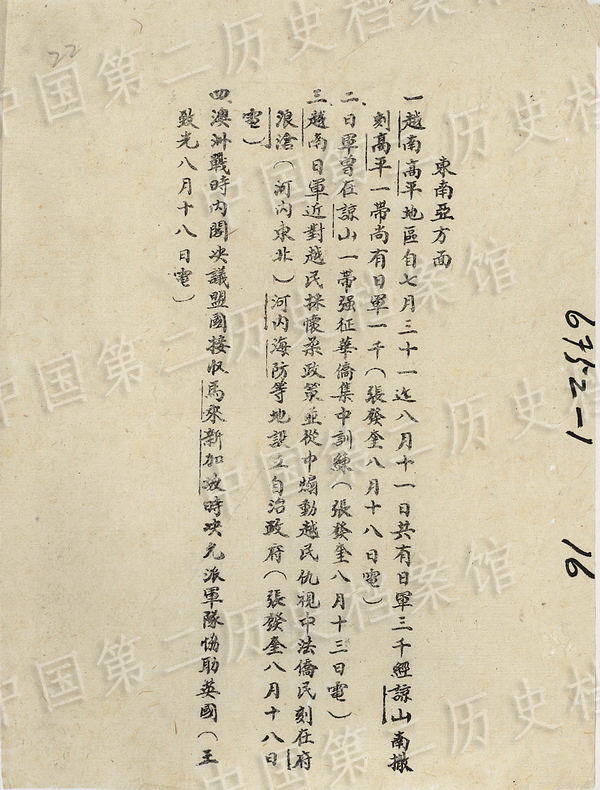 東南亞方面
一、越南高平地區自七月三十一迄八月十一日共有日軍三千經諒山南撤
刻高平一帶尚有日軍一千(張發奎八月十八日電)
二、日軍曾在諒山一帶强征華僑集中訓練(張發奎八月十三日電)
三、越南日軍近對越民採懷柔政策並從中煽動越民仇視中法僑民刻在府
浪滄(河内東北)河内海防等地設立自治政府(張發奎八月十八日
電)
四、澳洲戰時内閣决議盟國接收馬來新加坡時决先派軍隊協助英國(王
致光八月十八日電)
22
6752-1
16
中国第二历史档案馆